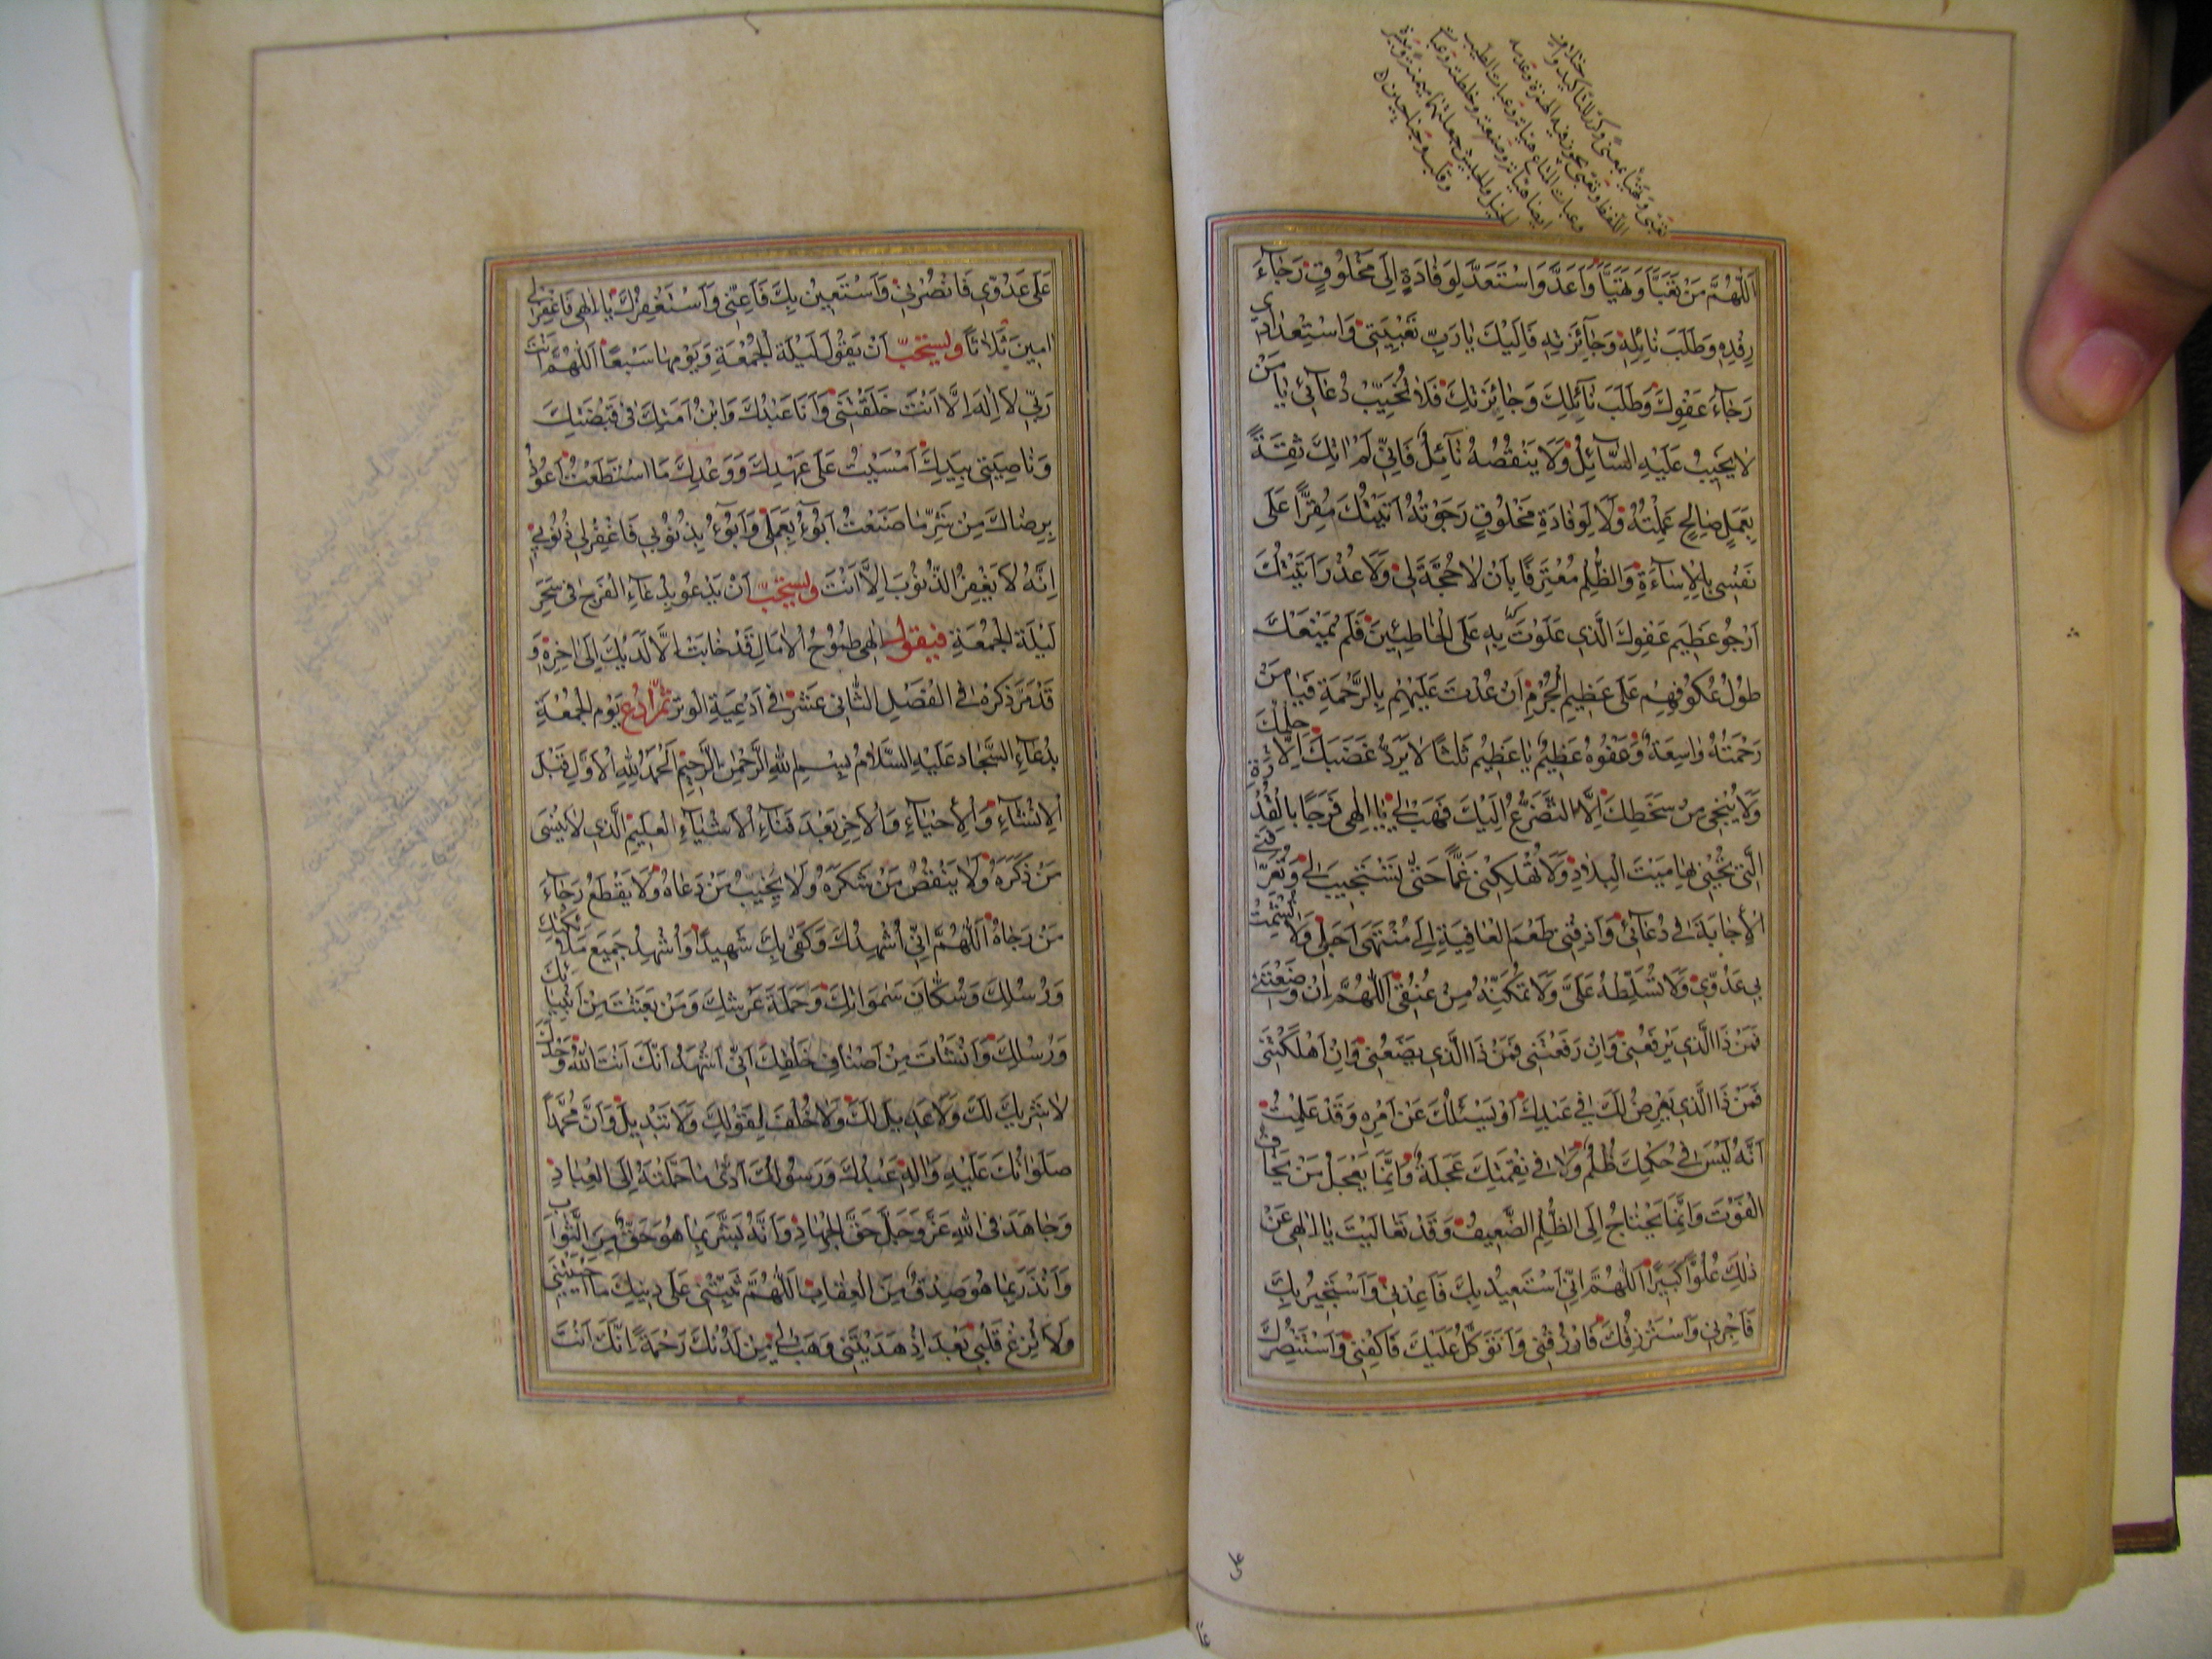 اَللّٰهُمَّ مَنْ تَعَبَّأَ وَتَهَيَّأَ وَاَعَدَّ وَاسْتَعَدَّ لِوَفَادَةٍ اِلَى مَخْلُوقٍ رَجَاءَ
رِفْدِهِ وَطَلَبَ نَائِلِهِ وَجَائِزَتِهِ فَاِلَيْكَ يَا رَبِّ تَعْبِيَتِي وَاسْتِعْدَادِي
رَجَاءَ عَفْوِكَ وَطَلَبَ نَائِلِكَ وَجَائِزَتِكَ فَلَا تُخَيِّبْ دُعَائِي يَا مَنْ
لَا يَخِيبُ عَلَيْهِ السَّائِلُ وَلَا يَنْقُصُهُ نَائِلٌ فَاِنِّي لَمْ اٰتِكَ ثِقَةً
بِعَمَلٍ صَالِحٍ عَمِلْتُهُ وَلَا لِوَفَادَةِ مَخْلُوقٍ رَجَوْتُهُ اَتَيْتُكَ مُقِرًّا عَلَى
نَفْسِي بِالْاِسَاءَةِ وَالظُّلْمِ مُعْتَرِفًا بِاَنْ لَا حُجَّةَ لِي وَلَا عُذْرَ اَتَيْتُكَ
اَرْجُو عَظِيمَ عَفْوِكَ الَّذِي عَلَوْتَ بِهِ عَلَى الْخَاطِئِينَ فَلَمْ يَمْنَعْكَ
طُولُ عُكُوفِهِمْ عَلَى عَظِيمِ الْجُرْمِ اَنْ عُدْتَ عَلَيْهِمْ بِالرَّحْمَةِ فَيَا مَنْ
رَحْمَتُهُ وَاسِعَةٌ وَعَفْوُهُ عَظِيمٌ يَا عَظِيمُ ثَلٰثًا لَا يَرُدُّ غَضَبَكَ اِلَّا حِلْمُكَ
وَلَا يُنْجِي مِنْ سَخَطِكَ اِلَّا التَّضَرُّعُ اِلَيْكَ فَهَبْ لِي يَا اِلٰهِي فَرَجًا بِالْقُدْرَةِ
الَّتِي تُحْيِي بِهَا مَيْتَ الْبِلَادِ وَلَا تُهْلِكْنِي غَمًّا حَتّٰى تَسْتَجِيبَ لِي وَتُعَرِّفَنِي
الْاِجَابَةَ فِي دُعَائِي وَاَذِقْنِي طَعْمَ الْعَافِيَةِ اِلَى مُنْتَهَى اَجَلِي وَلَا تُشْمِتْ
بِي عَدُوِّي وَلَا تُسَلِّطْهُ عَلَيَّ وَلَا تُمَكِّنْهُ مِنْ عُنُقِي اَللّٰهُمَّ اِنْ وَضَعْتَنِي
فَمَنْ ذَا الَّذِي يَرْفَعُنِي وَاِنْ رَفَعْتَنِي فَمَنْ ذَا الَّذِي يَضَعُنِي وَاِنْ اَهْلَكْتَنِي
فَمَنْ ذَا الَّذِي يَعْرِضُ لَكَ فِي عَبْدِكَ اَوْ يَسْئَلُكَ عَنْ اَمْرِهِ وَقَدْ عَلِمْتُ
اَنَّهُ لَيْسَ فِي حُكْمِكَ ظُلْمٌ وَلَا فِي نِقْمَتِكَ عَجَلَةٌ فَاِنَّمَا يَعْجَلُ مَنْ يَخَافُ
الْفَوْتَ وَاِنَّمَا يَحْتَاجُ اِلَى الظُّلْمِ الضَّعِيفُ وَقَدْ تَعَالَيْتَ يَا اِلٰهِي عَنْ
ذٰلِكَ عُلُوًّا كَبِيرًا اَللّٰهُمَّ اِنِّي اَسْتَعِيذُ بِكَ فَاَعِذْنِي وَاَسْتَجِيرُ بِكَ
فَاَجِرْنِي وَاَسْتَرْزِقُكَ فَارْزُقْنِي وَاَتَوَكَّلُ عَلَيْكَ فَاكْفِنِي وَاَسْتَنْصِرُكَ
عَلَى عَدُوِّي فَانْصُرْنِي وَاَسْتَعِينُ بِكَ فَاَعِنِّي وَاَسْتَغْفِرُكَ يَا اِلٰهِي فَاغْفِرْ لِي
اٰمِينَ ثَلَاثًا وَيُسْتَحَبُّ اَنْ يَقُولَ لَيْلَةَ الْجُمُعَةِ وَيَوْمَهَا سَبْعًا اَللّٰهُمَّ اَنْتَ
رَبِّي لَا اِلٰهَ اِلَّا اَنْتَ خَلَقْتَنِي وَاَنَا عَبْدُكَ وَابْنُ اَمَتِكَ فِي قَبْضَتِكَ
وَنَاصِيَتِي بِيَدِكَ اَمْسَيْتُ عَلَى عَهْدِكَ وَوَعْدِكَ مَا اسْتَطَعْتُ اَعُوذُ
بِرِضَاكَ مِنْ شَرِّ مَا صَنَعْتُ اَبُوءُ بِعَمَلِي وَاَبُوءُ بِذُنُوبِي فَاغْفِرْ لِي ذُنُوبِي
اِنَّهُ لَا يَغْفِرُ الذُّنُوبَ اِلَّا اَنْتَ وَيُسْتَحَبُّ اَنْ يَدْعُوَ بِدُعَاءِ الْفَرَجِ فِي سَحَرِ
لَيْلَةِ الْجُمُعَةِ فَيَقُولُ اِلٰهِي طُمُوحُ الْاٰمَالِ قَدْ خَابَتْ اِلَّا لَدَيْكَ اِلَى اٰخِرِهِ وَ
قَدْ مَرَّ ذِكْرُهُ فِي الْفَصْلِ الثَّانِي عَشَرَ فِي اَدْعِيَةِ الْوَتْرِ ثُمَّ ادْعُ يَوْمَ الْجُمُعَةِ
بِدُعَاءِ السَّجَّادِ عَلَيْهِ السَّلَامُ بِسْمِ اللّٰهِ الرَّحْمٰنِ الرَّحِيمِ اَلْحَمْدُ لِلّٰهِ الْاَوَّلِ قَبْلَ
الْاِنْشَاءِ وَالْاِحْيَاءِ وَالْاٰخِرِ بَعْدَ فَنَاءِ الْاَشْيَاءِ الْعَلِيمِ الَّذِي لَا يَنْسَى
مَنْ ذَكَرَهُ وَلَا يَنْقُصُ مَنْ شَكَرَهُ وَلَا يُخَيِّبُ مَنْ دَعَاهُ وَلَا يَقْطَعُ رَجَاءَ
مَنْ رَجَاهُ اَللّٰهُمَّ اِنِّي اُشْهِدُكَ وَكَفٰى بِكَ شَهِيدًا وَاُشْهِدُ جَمِيعَ مَلٰئِكَتِكَ
وَرُسُلِكَ وَسُكَّانَ سَمٰوَاتِكَ وَحَمَلَةَ عَرْشِكَ وَمَنْ بَعَثْتَ مِنْ اَنْبِيَائِكَ
وَرُسُلِكَ وَاَنْشَأْتَ مِنْ اَصْنَافِ خَلْقِكَ اَنِّي اَشْهَدُ اَنَّكَ اَنْتَ اللّٰهُ وَحْدَكَ
لَا شَرِيكَ لَكَ وَلَا عَدِيلَ لَكَ وَلَا خُلْفَ لِقَوْلِكَ وَلَا تَبْدِيلَ وَاَنَّ مُحَمَّدًا
صَلَوَاتُكَ عَلَيْهِ وَاٰلِهِ عَبْدُكَ وَرَسُولُكَ اَدّٰى مَا حَمَّلْتَهُ اِلَى الْعِبَادِ
وَجَاهَدَ فِي اللّٰهِ عَزَّ وَجَلَّ حَقَّ الْجِهَادِ وَاَنَّهُ بَشَّرَ بِمَا هُوَ حَقٌّ مِنَ الثَّوَابِ
وَاَنْذَرَ بِمَا هُوَ صِدْقٌ مِنَ الْعِقَابِ اَللّٰهُمَّ ثَبِّتْنِي عَلَى دِينِكَ مَا اَحْيَيْتَنِي
وَلَا تُزِغْ قَلْبِي بَعْدَ اِذْ هَدَيْتَنِي وَهَبْ لِي مِنْ لَدُنْكَ رَحْمَةً اِنَّكَ اَنْتَ